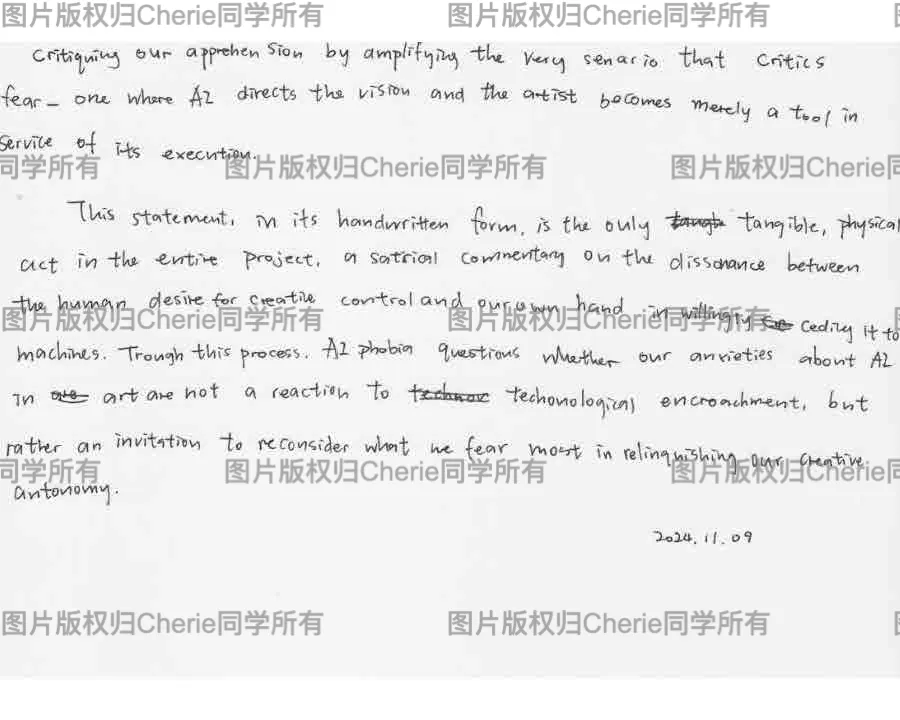 图片版权归Cherie同学所有 图片版权归Cherie同学所有
critiquing our apprehension by amplifying the very senario that critics
fear - one where AI directs the vision and the artist becomes merely a tool in
service of its execution.
同学所有 图片版权归Cherie同学所有 图片版权归Cherie同
This statement, in its handwritten form, is the only tangible, physical
act in the entire project, a satrial commentary on the dissonance between
the human desire for creative control and our own hand in willingly ceding it to
图片版权归Cherie同学所有 图片版权归Cherie同学所有
machines. Trough this process, AI phobia questions whether our anxieties about AI
in art are not a reaction to techonological encroachment, but
rather an invitation to reconsider what we fear most in relinquishing our creative
同学所有 图片版权归Cherie同学所有 图片版权归Cherie同
autonomy.
2024.11.09
图片版权归Cherie同学所有 图片版权归Cherie同学所有